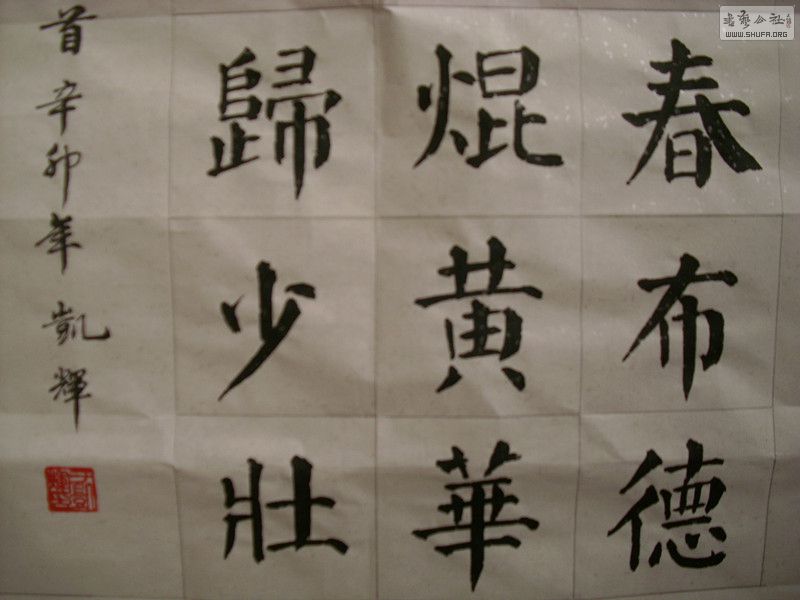 春布德
焜黄華
歸少壯
首辛卯年凱輝
書藝公社
WWW.SHUFA.ORG